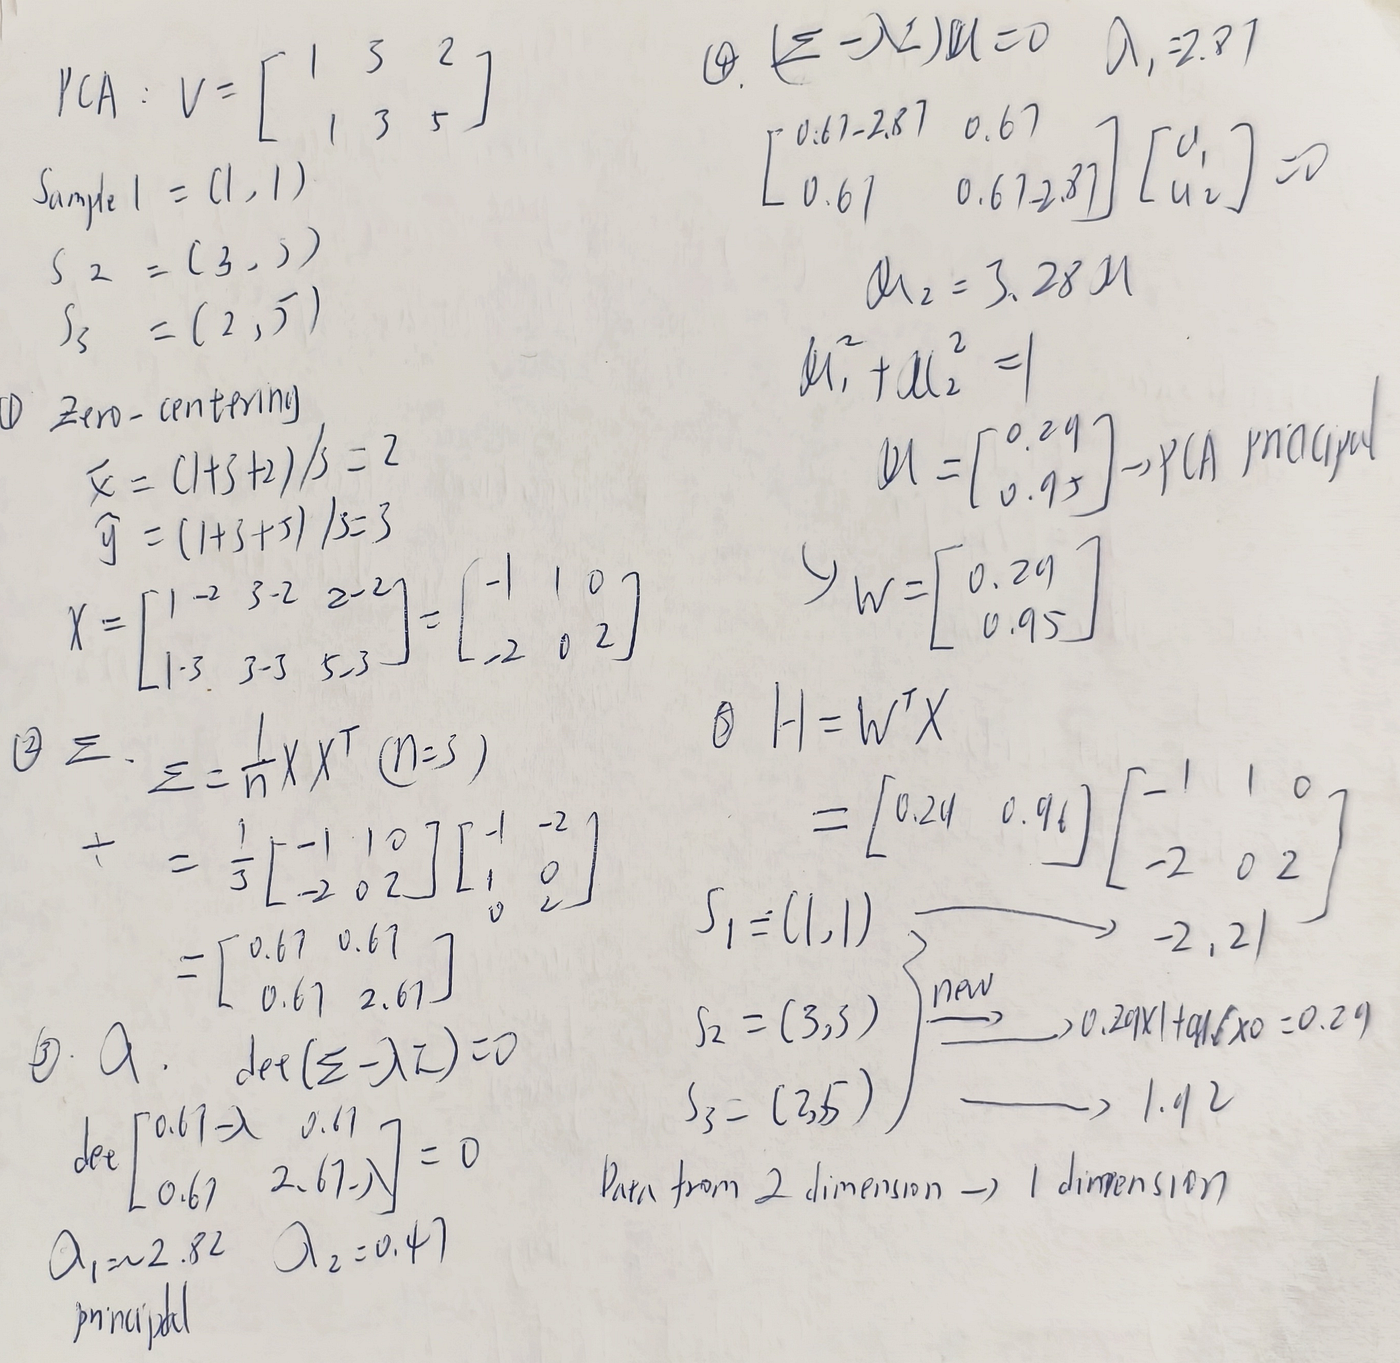 PCA : V = [ 1 3 2
1 3 5 ]
Sample 1 = (1, 1)
S 2 = (3, 3)
S3 = (2, 5)
① Zero-centering
x̄ = (1+3+2)/3 = 2
ȳ = (1+3+5)/3=3
X = [ 1-2 3-2 2-2 ] = [ -1 1 0
1-3 3-3 5-3 ] -2 0 2 ]
② Σ.
Σ = 1/n X X^T (n=3)
÷ = 1/3 [ -1 1 0 ] [ -1 -2
-2 0 2 ] 1 0
0 2 ]
= [ 0.67 0.67
0.67 2.67 ]
③. λ. det(Σ-λI)=0
det [ 0.67-λ 0.67
0.67 2.67-λ ] = 0
λ1=~2.82 λ2=0.47
principal
④. (Σ-λI)u=0 λ1=2.87
[ 0.67-2.87 0.67 ] [ u1
0.67 0.67-2.87 ] u2 ] =0
u2 = 3.28 u
u1² + u2² = 1
u = [ 0.29
0.95 ] → PCA principal
↳ W = [ 0.29
0.95 ]
⑤ H = W^T X
= [ 0.29 0.96 ] [ -1 1 0
-2 0 2 ]
S1 = (1,1) → -2,21
S2 = (3,3) new → 0.29x1+ x0 = 0.29
S3 = (2,5) → 1.92
Data from 2 dimension → 1 dimension